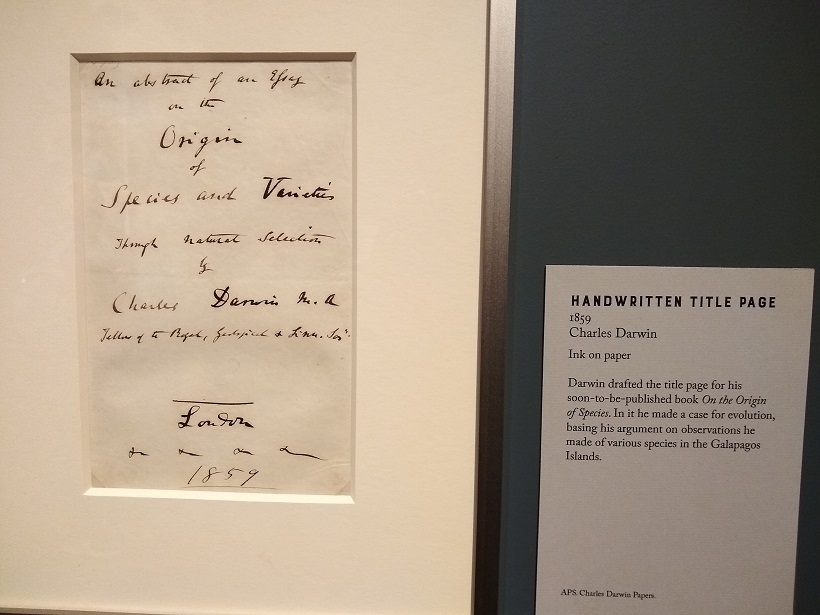 An abstract of an Essay
on the
Origin
of
Species and Varieties
Through natural Selection
by
Charles Darwin M. A
Fellow of the Royal, Geological & Linn. Socy.
London
&c &c &c &c
1859
HANDWRITTEN TITLE PAGE
1859
Charles Darwin
Ink on paper
Darwin drafted the title page for his
soon-to-be-published book On the Origin
of Species. In it he made a case for evolution,
basing his argument on observations he
made of various species in the Galapagos
Islands.
APS. Charles Darwin Papers.